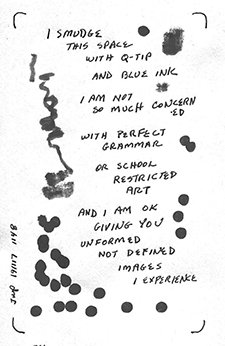 I SMUDGE
THIS SPACE
WITH Q-TIP
AND BLUE INK
I AM NOT
SO MUCH CONCERN
-ED
WITH PERFECT
GRAMMAR
OR SCHOOL
RESTRICTED
ART
AND I AM OK
GIVING YOU
UNFORMED
NOT DEFINED
IMAGES
I EXPERIENCE